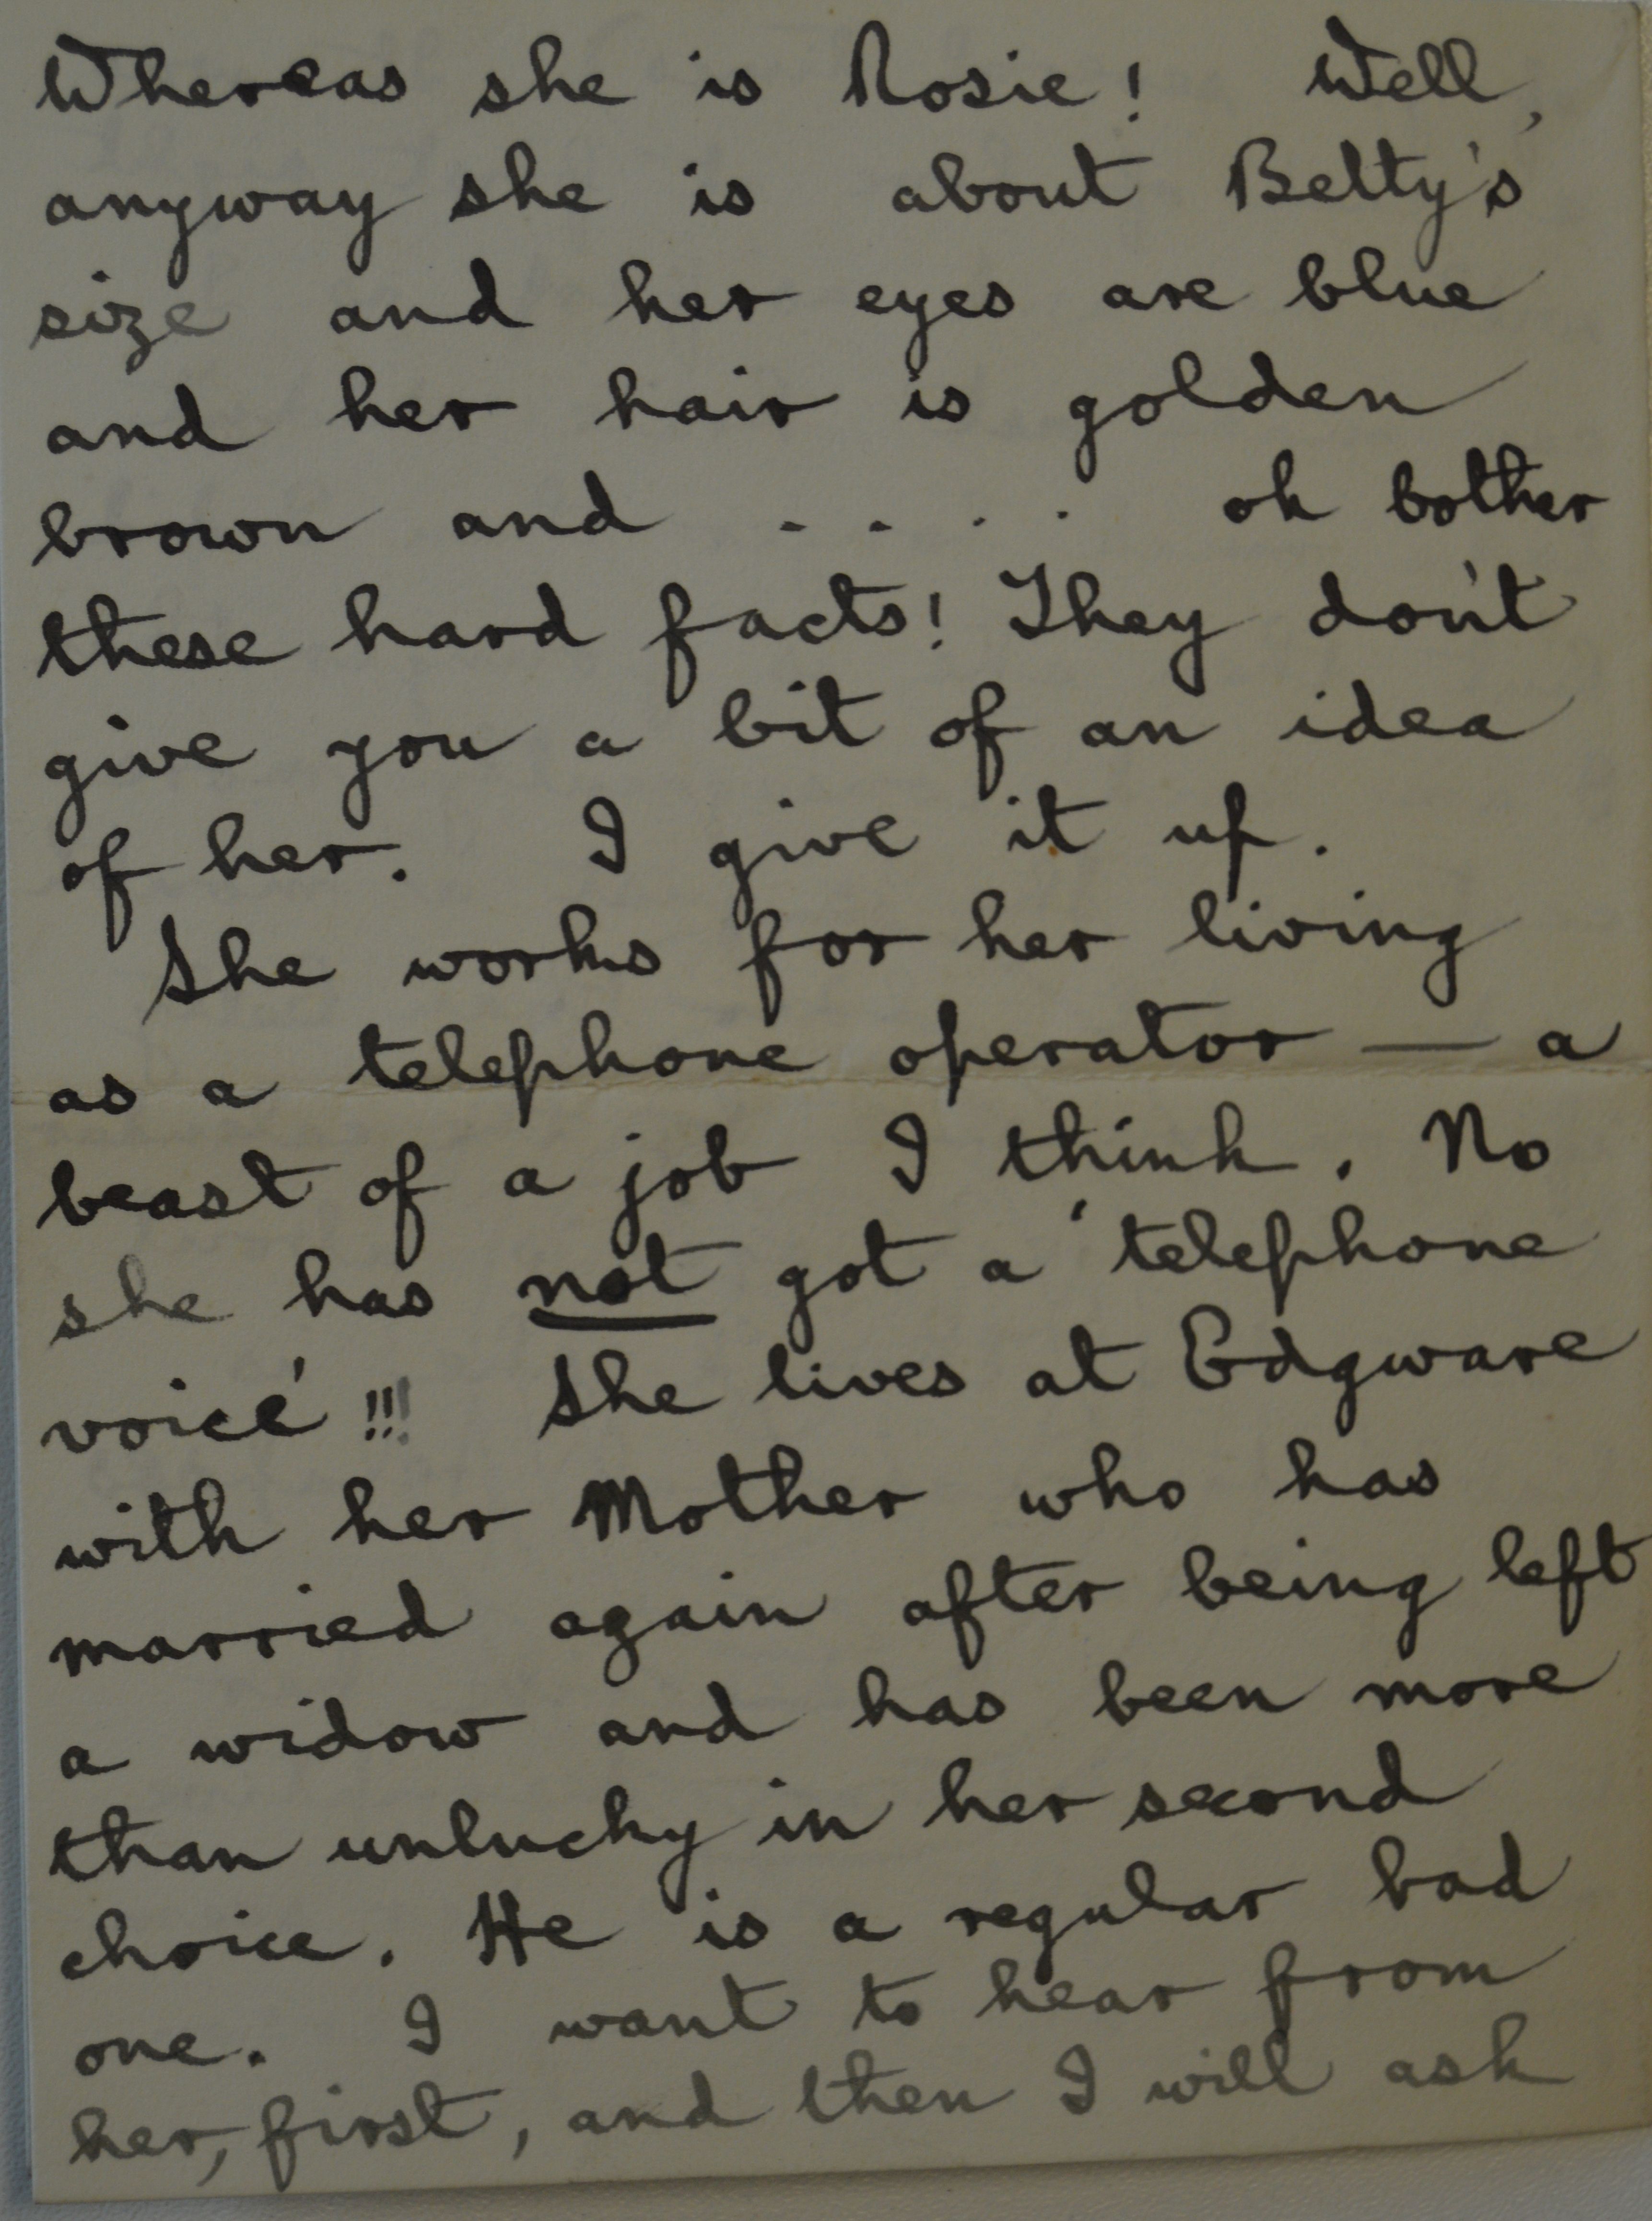 Whereas she is Rosie! Well,
anyway she is about Betty's
size and her eyes are blue
and her hair is golden
brown and . . . . oh bother
these hard facts! They don't
give you a bit of an idea
of her. I give it up.
She works for her living
as a telephone operator — a
beast of a job I think. No
she has not got a 'telephone
voice' !!! She lives at Edgware
with her Mother who has
married again after being left
a widow and has been more
than unlucky in her second
choice. He is a regular bad
one. I want to hear from
her, first, and then I will ask